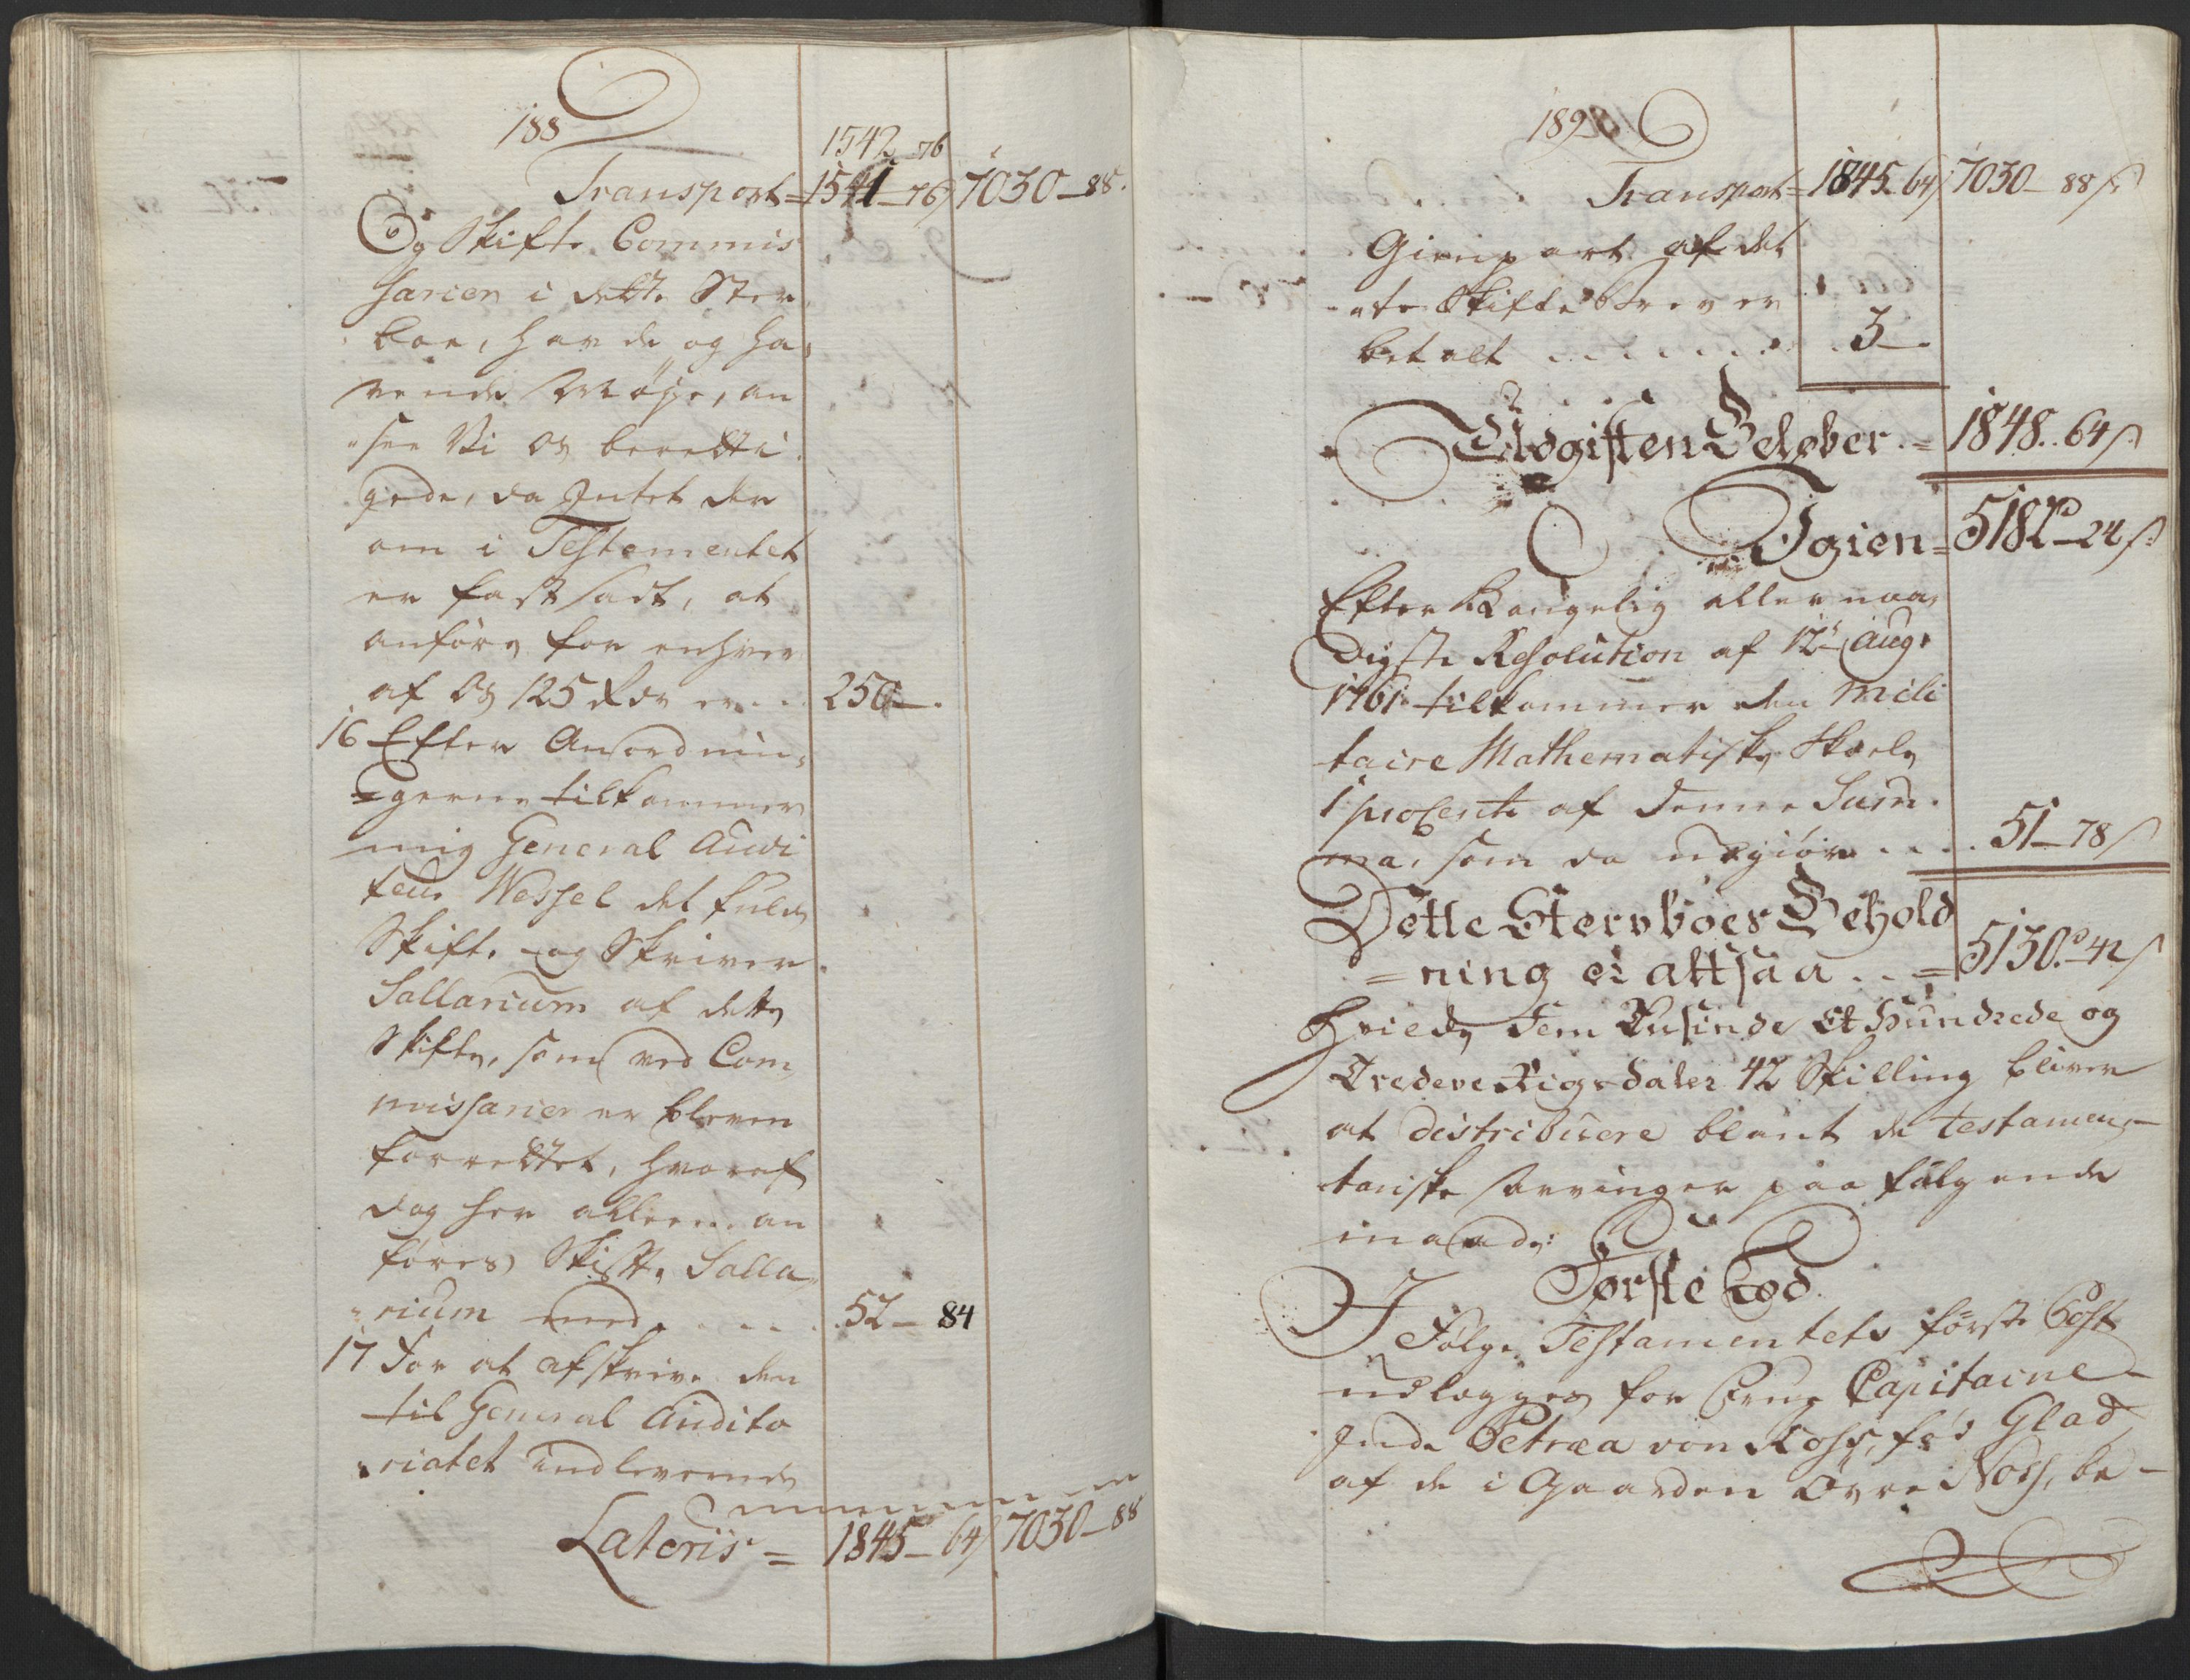 188
1542 - 76
Transport = 1541 - 76 7030 - 88.
Og Skifte Commis
sarier i dette Ster
boe, havde og ha,
vende Møye, an
"see Vi os beretti
gede, da Intet der
om i Testamentet
er fastsadt, at
anføre for enhver
af Os 125 Rdr er . . 250 -.
16 Efter Anordnin,
=gerne tilkommer
mig General Audi
teur Wessel det fulde
Skifte og Skriver
Sallarium af dette
Skifte, som ved Com,
missarier er bleven
forrettet, hvoraf
dog her alleene an
føres Skifte, Salla,
"rium med . . . . 52 - 84
17 For at afskrive den
til General Audito
"riatet indleverende
Lateris = 1845 - 64 7030 - 88
189
Transport = 1845 - 64 7030 - 88 s
Gienpart af det
"te Skifte Brev er
betalt . . . . . . 3 -.
Udgiften Beløber = 1848 . 64 s
Igien = 5182 - 24 s
Efter Kongelig allernaa,
digste Resolution af 12te Aug:
1761 tilkommer den Mili
taire Mathematiske Skoele
1 proCento af denne Sum,
ma, som da udgiør . . . . 51 - 78 s
Dette Stervboes Behold
=ning er altsaa . . = 5130 - 42 s
Hvilke Fem Tusinde Et Hundrede og
Tredeve Rigsdaler 42 Skilling bliver
at distribuere blant de testamen,
tariske Arvinger paa følgende
maade:
Første Lod.
I Følge Testamentets første Post
udlægges for Frue Capitaine
Inde Petræa von Koss, fød Glad
af de i Gaarden Øvre Noss, be-